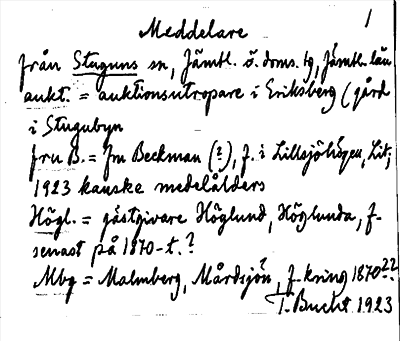 1
Meddelare
från Stuguns sn, Jämtl. ö. doms. tg, Jämtl. län
aukt. = auktionsutropare i Eriksberg (gård
i Stugubyn
fru B. = fru Beckman (?), f. i Lillsjöhögen, Lit;
1923 kanske medelålders
Högl. = gästgivare Höglund, Höglunda, f.
senast på 1870-t.?
Mbg = Malmberg, Mårdsjön?, f. kring 1870??
T. Bucht 1923